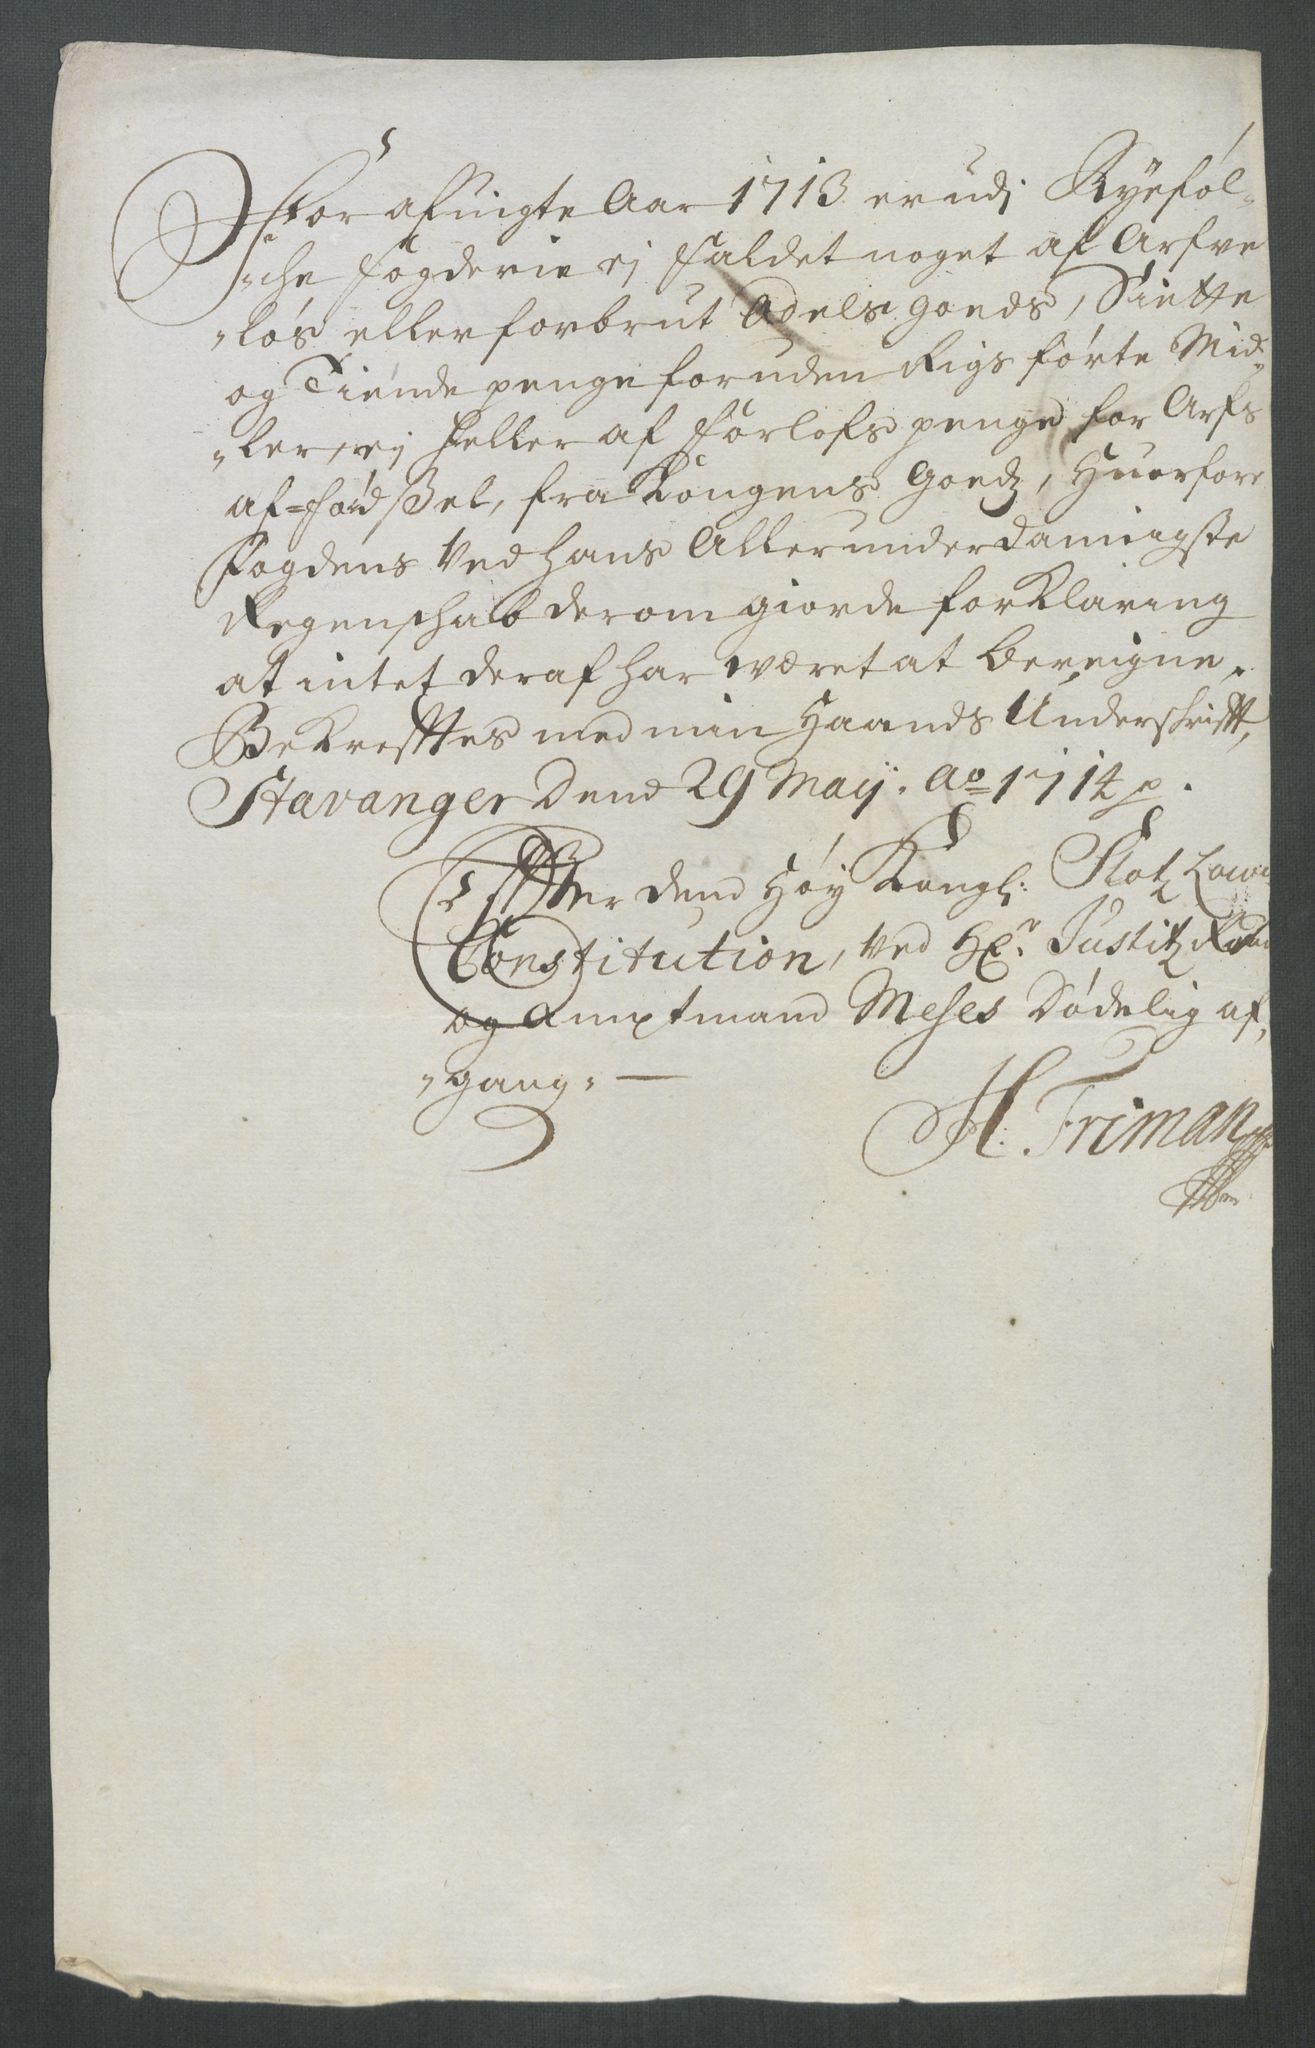 For afvigte Aar 1713 er udj Ryeføl-
"che fogderie ej faldet noget af Arfve
"løs eller forbrut Adels goeds, Siette
og Tiende penge for uden Rigs førte Mid-
"ler, ej heller af forlofs penge for Arfs
af-fødßel, fra Kongens Goedz, Huorfore
Fogdens Ved hans Allerunderdanigste
Regenschab derom giorde forKlaring
at intet deraf har wæret at bereigne,
BeKreffttes med min Haands Underschrifft,
Stavanger Dend 29 Maij. Ao 1714 p.
Effter dend Høy Kongl: Slotz Lows
Constitution, Ved Hr. Justitz Raad
og Amptmand Meses Dødelig af,
"gang,
H. Friman